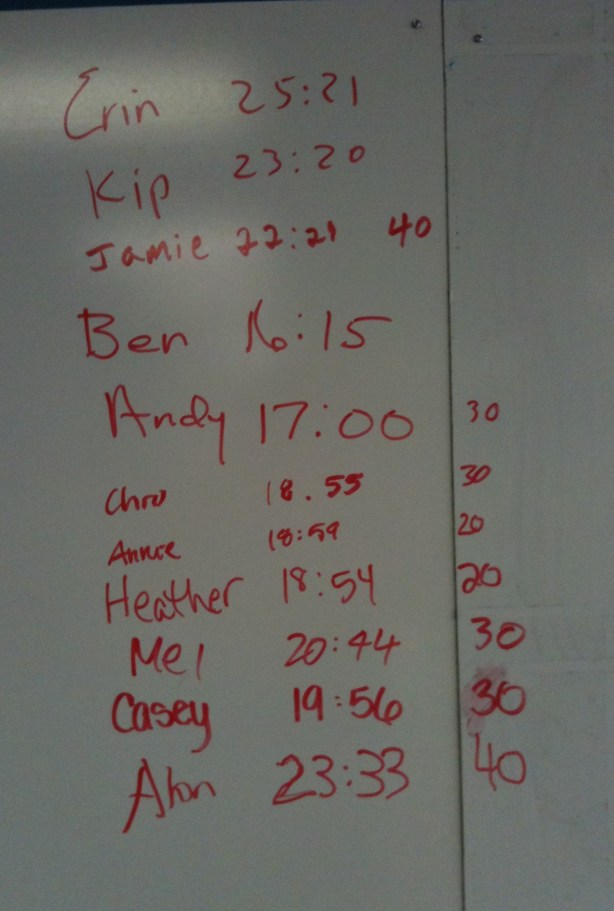 Erin 25:21
Kip 23:20
Jamie 22:21 40
Ben 16:15
Andy 17:00 30
Chris 18.55 30
Annie 18:59 20
Heather 18:54 20
Mel 20:44 30
Casey 19:56 30
23:33 40